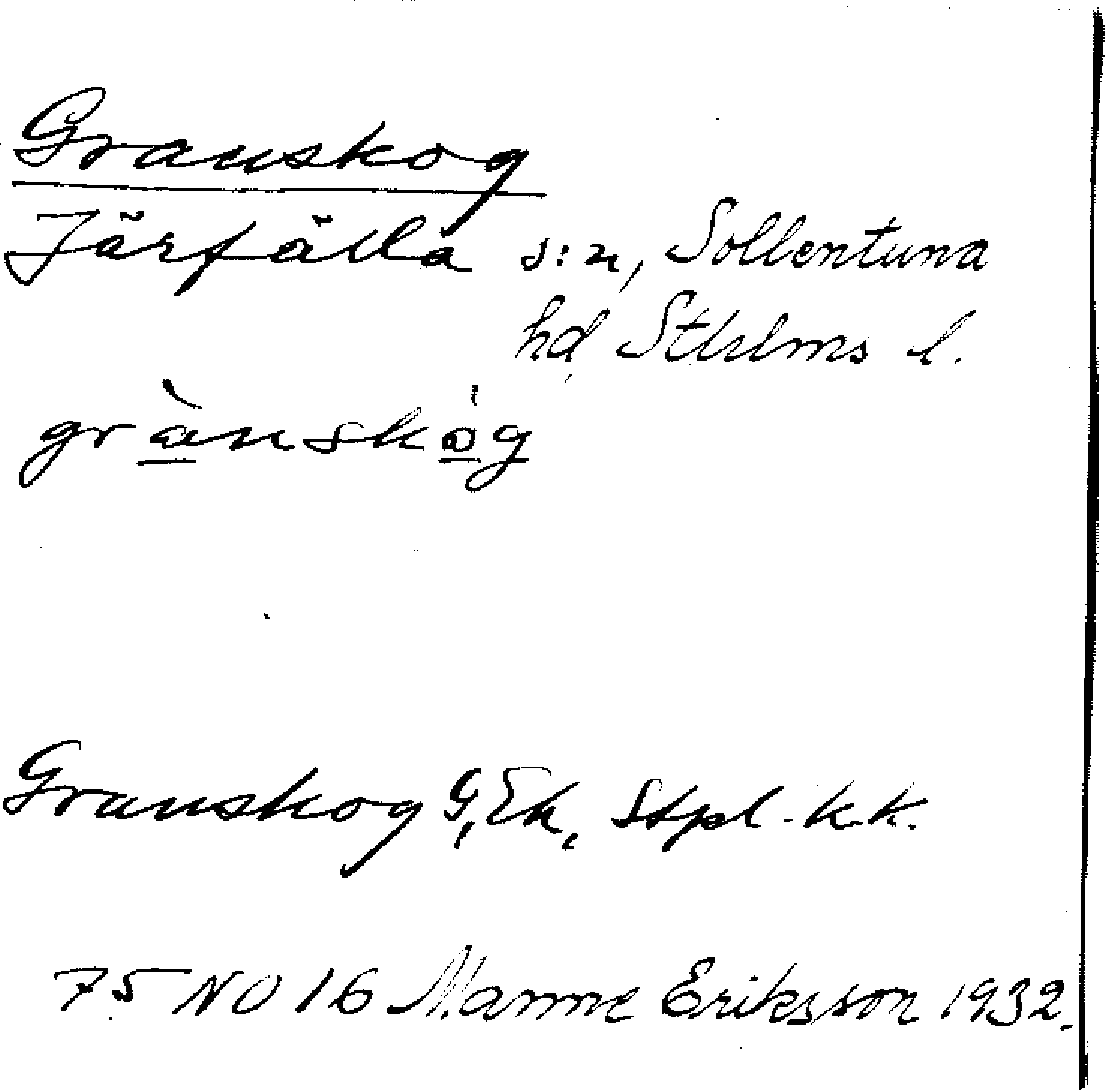 Granskog
Järfälla s:n, Sollentuna
hd, Sthlms l.
grànskóg
Granskog G, Ek, Stpl. k.k.
75 NO 16 Manne Eriksson 1932.